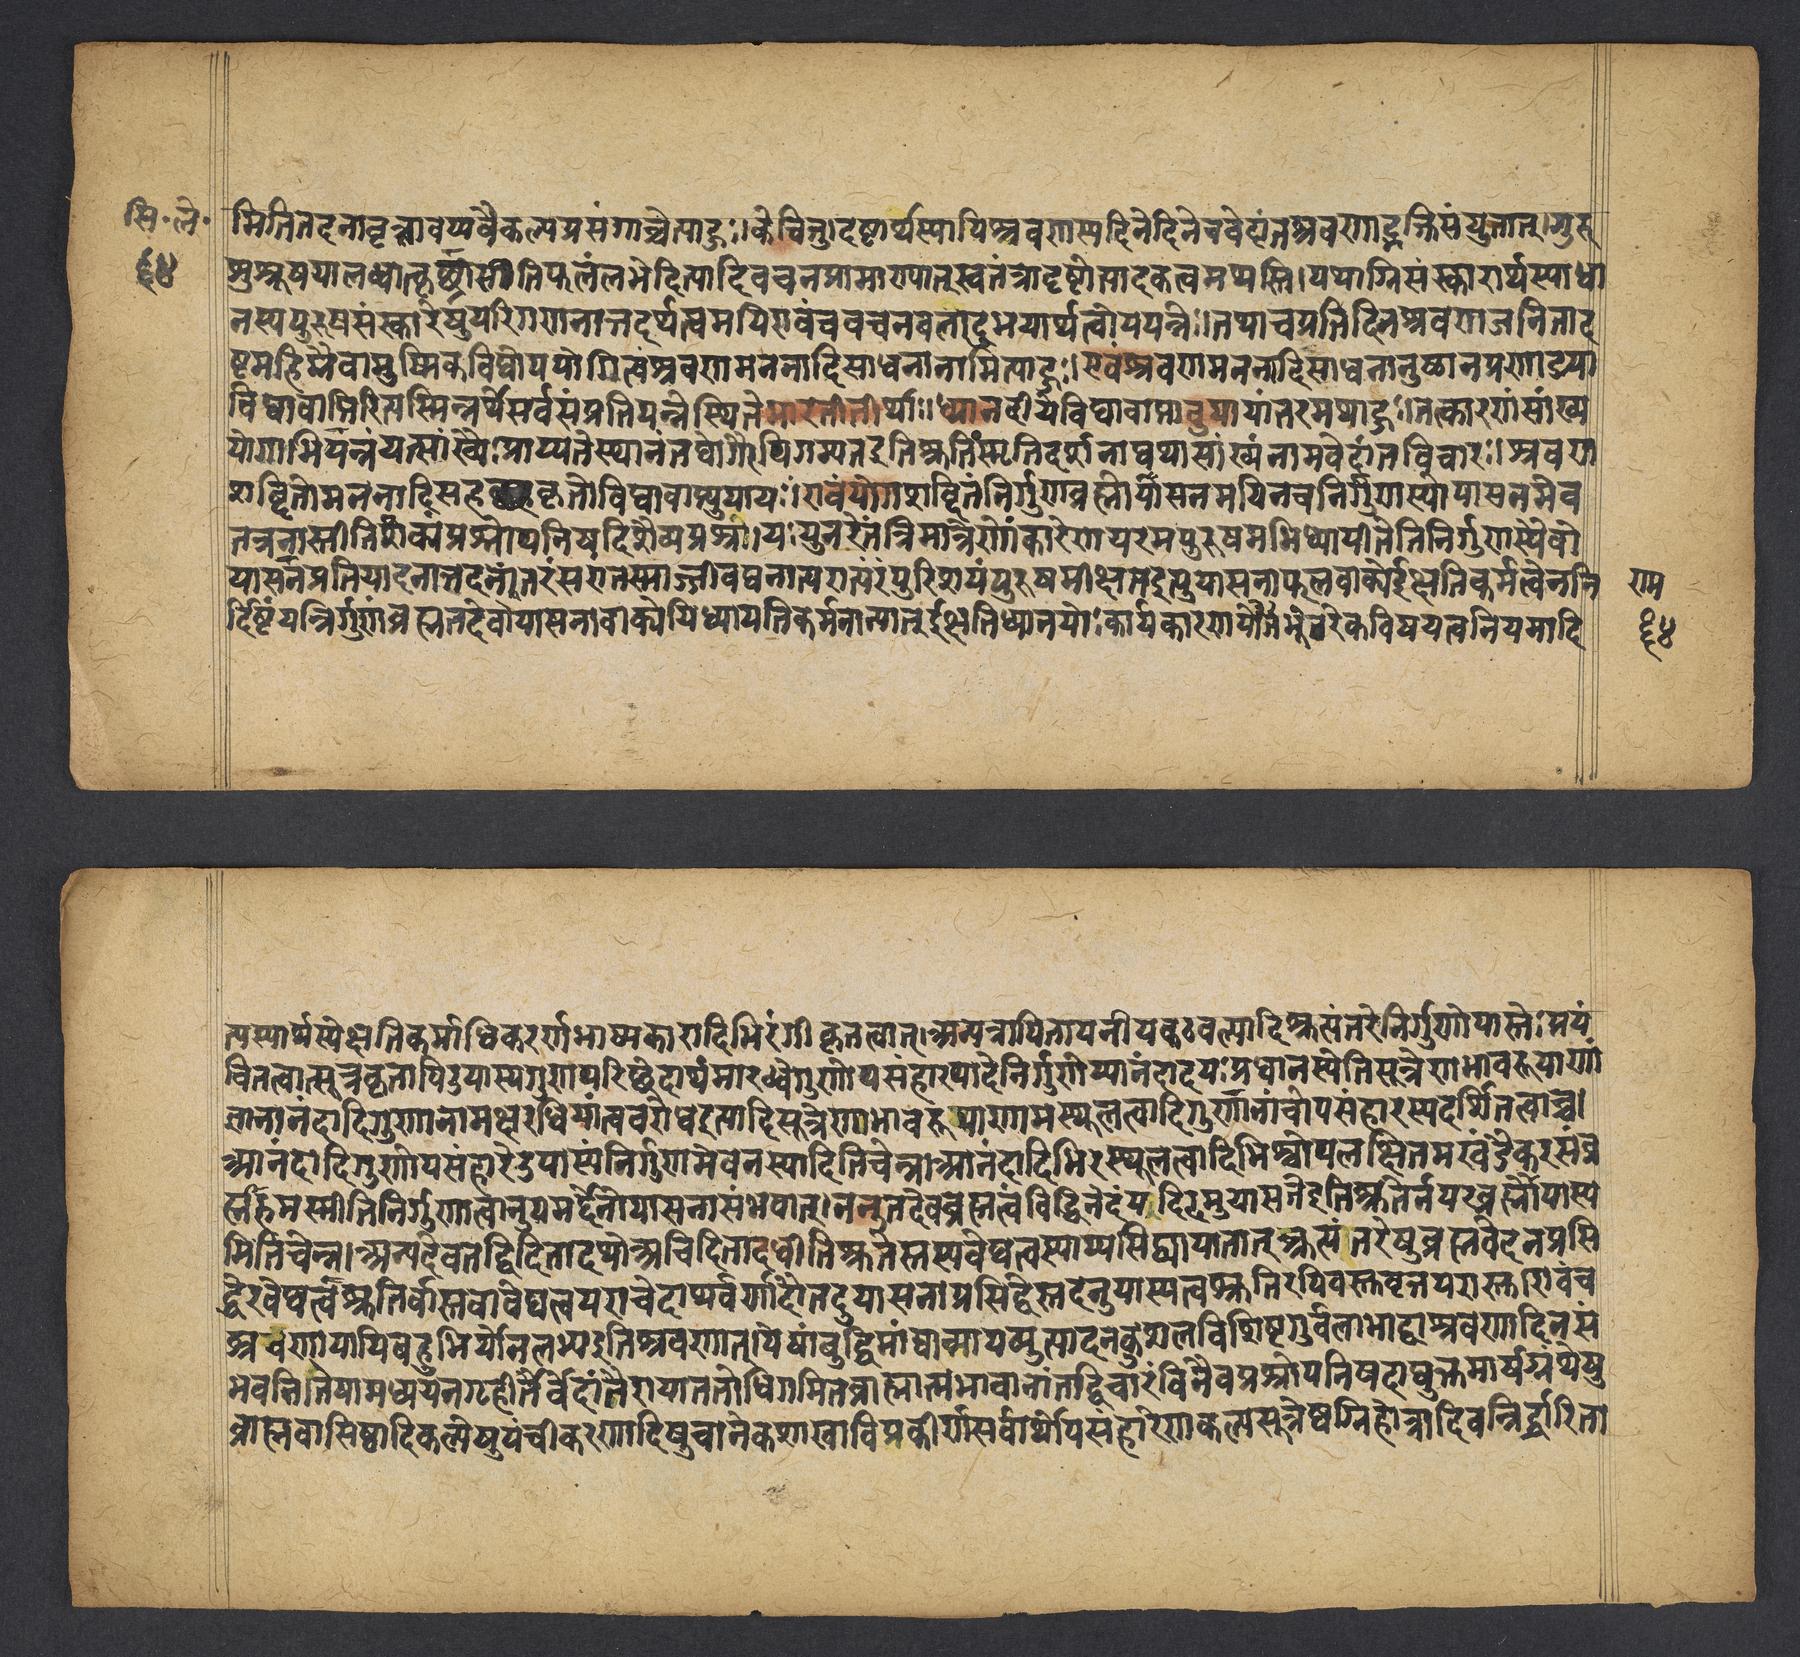 सि॰ले॰
६४
मितितदनावृत्त्यावप्यवैकल्यप्रसंगाच्चेत्याहुः।केचित्तु।दृष्टार्थस्यापिश्रवणस्यदिनेदिनेचवेदांतश्रवणाद्भक्तिसंयुतात्।गुरु
शुश्रूषयालब्धात्कृच्छ्राशीतिफलंलभेदित्यादिवचनप्रामाण्यात्स्वतंत्रादृष्टोत्पादकत्वमप्यस्ति।यथाग्निसंस्कारार्थस्याधा
नस्यपुरुषसंस्कारेषुपरिगणनात्तदर्थत्वमपिएवंचवचनबलादुभयार्थत्वोपपत्तेः।तथाचप्रतिदिनश्रवणजनितादृ
ष्टमहिम्नैवामुष्मिकविद्योपयोगित्वंश्रवणमननादिसाधनानामित्याहुः।एवंश्रवणमननादिसाधनानुष्ठानप्रणाड्या
विद्यावाप्तिरित्यस्मिन्नर्थेसर्वसंप्रतिपन्नेस्थितेभारतीतीर्थाः।ध्यानदीपेविद्यावाप्तावुपायांतरमप्याहुः।तत्कारणंसांख्य
योगाभिपन्नंयत्सांख्यैःप्राप्यतेस्थानंतद्योगैरधिगम्यतइतिश्रुतिस्मृतिदर्शनाद्यथासांख्यंनामवेदांतविचारः।श्रवण
शब्दितोमननादिसहकृतोविद्यावाप्त्युपायः।एवंयोगशब्दितंनिर्गुणब्रह्मोपासनमपिनचनिर्गुणस्योपासनमेव
तत्रनास्तीतिशंक्यंप्रश्नोपनिषदिशैब्यप्रश्ने।यःपुनरेतंत्रिमात्रेणोंकारेणपरमपुरुषमभिध्यायीतेतिनिर्गुणस्यैवो
पासनप्रतिपादनात्तदनंतरंसएतस्माज्जीवघनात्परात्परंपुरिशयंपुरुषमीक्षतइत्युपासनाफलवाक्येईक्षतिकर्मत्वेननि
र्दिष्टंयन्निर्गुणंब्रह्मतदेवोपासनावाक्येपिध्यायतिकर्मनान्यत्ईक्षतिध्यानयोःकार्यकारणयोरेकविषयत्वनियमादि
राम
६४
त्यस्यार्थस्येक्षतिकर्माधिकरणेभाष्यकारादिभिरंगीकृतत्वात्।अन्यत्रापितापनीयकठवल्यादिश्रुत्यंतरेनिर्गुणोपास्तेःप्रपं
चितत्वात्सूत्रकृतापिउपास्यगुणपरिच्छेदार्थमारब्धेगुणोपसंहारपादेनिर्गुणेप्यानंदादयःप्रधानस्येतिसूत्रेणभावरूपाणां
ज्ञानानंदादिगुणानामक्षरधियांत्ववरोधइत्यादिसूत्रेणाभावरूपाणामस्थूलत्वादिगुणानांचोपसंहारस्यदर्शितत्वाच्च।
आनंदादिगुणोपसंहारेउपास्यंनिर्गुणमेवनस्यादितिचेन्न।आनंदादिभिरस्थूलत्वादिभिश्चोपलक्षितमखंडैकरसंब्र
ह्माहमस्मीतिनिर्गुणत्वानुपमर्देनोपासनासंभवात्।ननुतदेवब्रह्मत्वंविद्धिनेदंयदिदमुपासतेइतिश्रुतेर्नपरब्रह्मोपास्य
मितिचेन्न।अन्यदेवतद्विदितादथोअविदितादधीतिश्रुतेस्तस्यवेद्यत्वस्याप्यसिद्ध्यापातात्श्रुत्यंतरेषुब्रह्मवेदनप्रसि
द्धेरवेद्यत्वश्रुतिर्वास्तवावेद्यत्वपराचेदाथर्वणादौतदुपासनाप्रसिद्धेस्तदनुपास्यत्वश्रुतिरपिवस्तुवृत्तपरास्तुएवंच
श्रवणायापिबहुभिर्योनलभ्यइतिश्रवणात्येषांबुद्धिमांद्यान्यायव्युत्पादनकुशलविशिष्टगुर्वलाभाद्वाश्रवणादिनसं
भवतितेषामध्ययनगृहीतैर्वेदांतैरापाततोधिगमितब्रह्मात्मभावानांतद्विचारंविनैवप्रश्नोपनिषदाद्युक्तमार्षग्रंथेषु
ब्राह्मवासिष्ठादिकल्पेषुपंचीकरणादिषुचानेकशाखाविप्रकीर्णसर्वार्थोपसंहारेणकल्पसूत्रेष्वग्निहोत्रादिवन्निर्द्धारिता